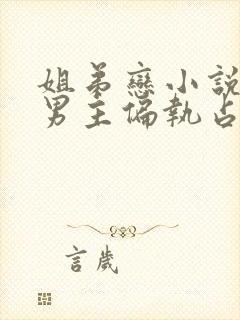 姐弟戀小說
男主偏執占
言歲